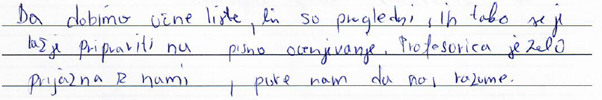 Da dobimo učne liste, ki so pregledni, ih tako se je
lažje pripraviti na pisno ocenjevanje. Profesorica je zelo
prijazna z nami, piše nam da nas razume.